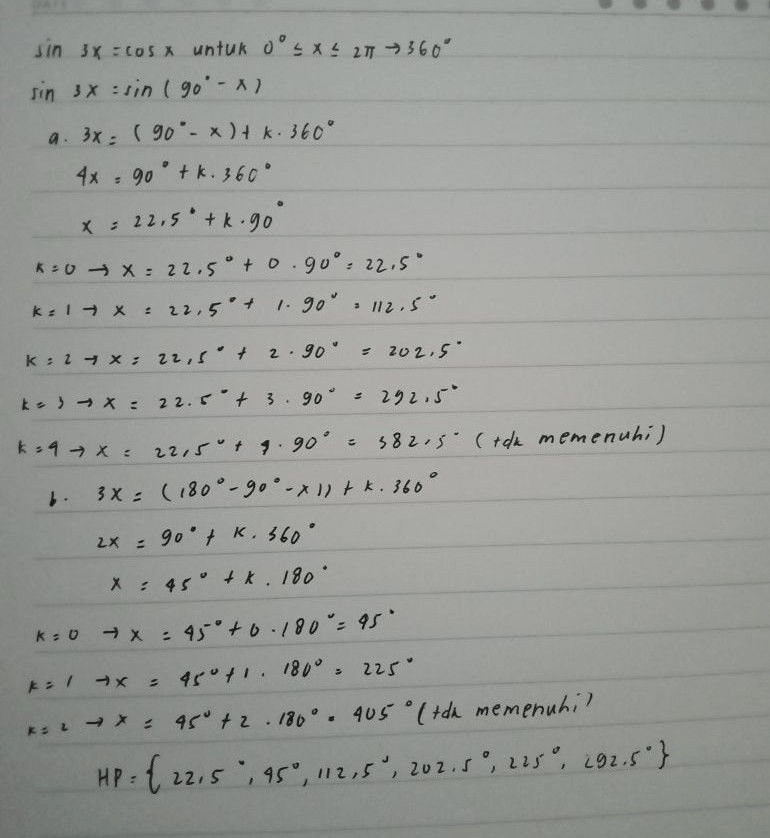 sin 3x = cos x untuk 0° ≤ x ≤ 2π → 360°
sin 3x = sin (90° - x)
a. 3x = (90° - x) + k. 360°
4x = 90° + k. 360°
x = 22,5° + k. 90°
k = 0 → x = 22,5° + 0 . 90° = 22,5°
k = 1 → x = 22,5° + 1. 90° = 112,5°
k = 2 → x = 22,5° + 2 . 90° = 202,5°
k = 3 → x = 22.5° + 3 . 90° = 292,5°
k = 4 → x = 22,5° + 4 . 90° = 382,5° (tdk memenuhi)
b. 3x = (180° - 90° - x)) + k. 360°
2x = 90° + k. 360°
x = 45° + k. 180°
k = 0 → x = 45° + 0 . 180° = 45°
k = 1 → x = 45° + 1 . 180° = 225°
k = 2 → x = 45° + 2 . 180° = 405° (tdk memenuhi)
HP = {22,5°, 45°, 112,5°, 202.5°, 225°, 292.5°}